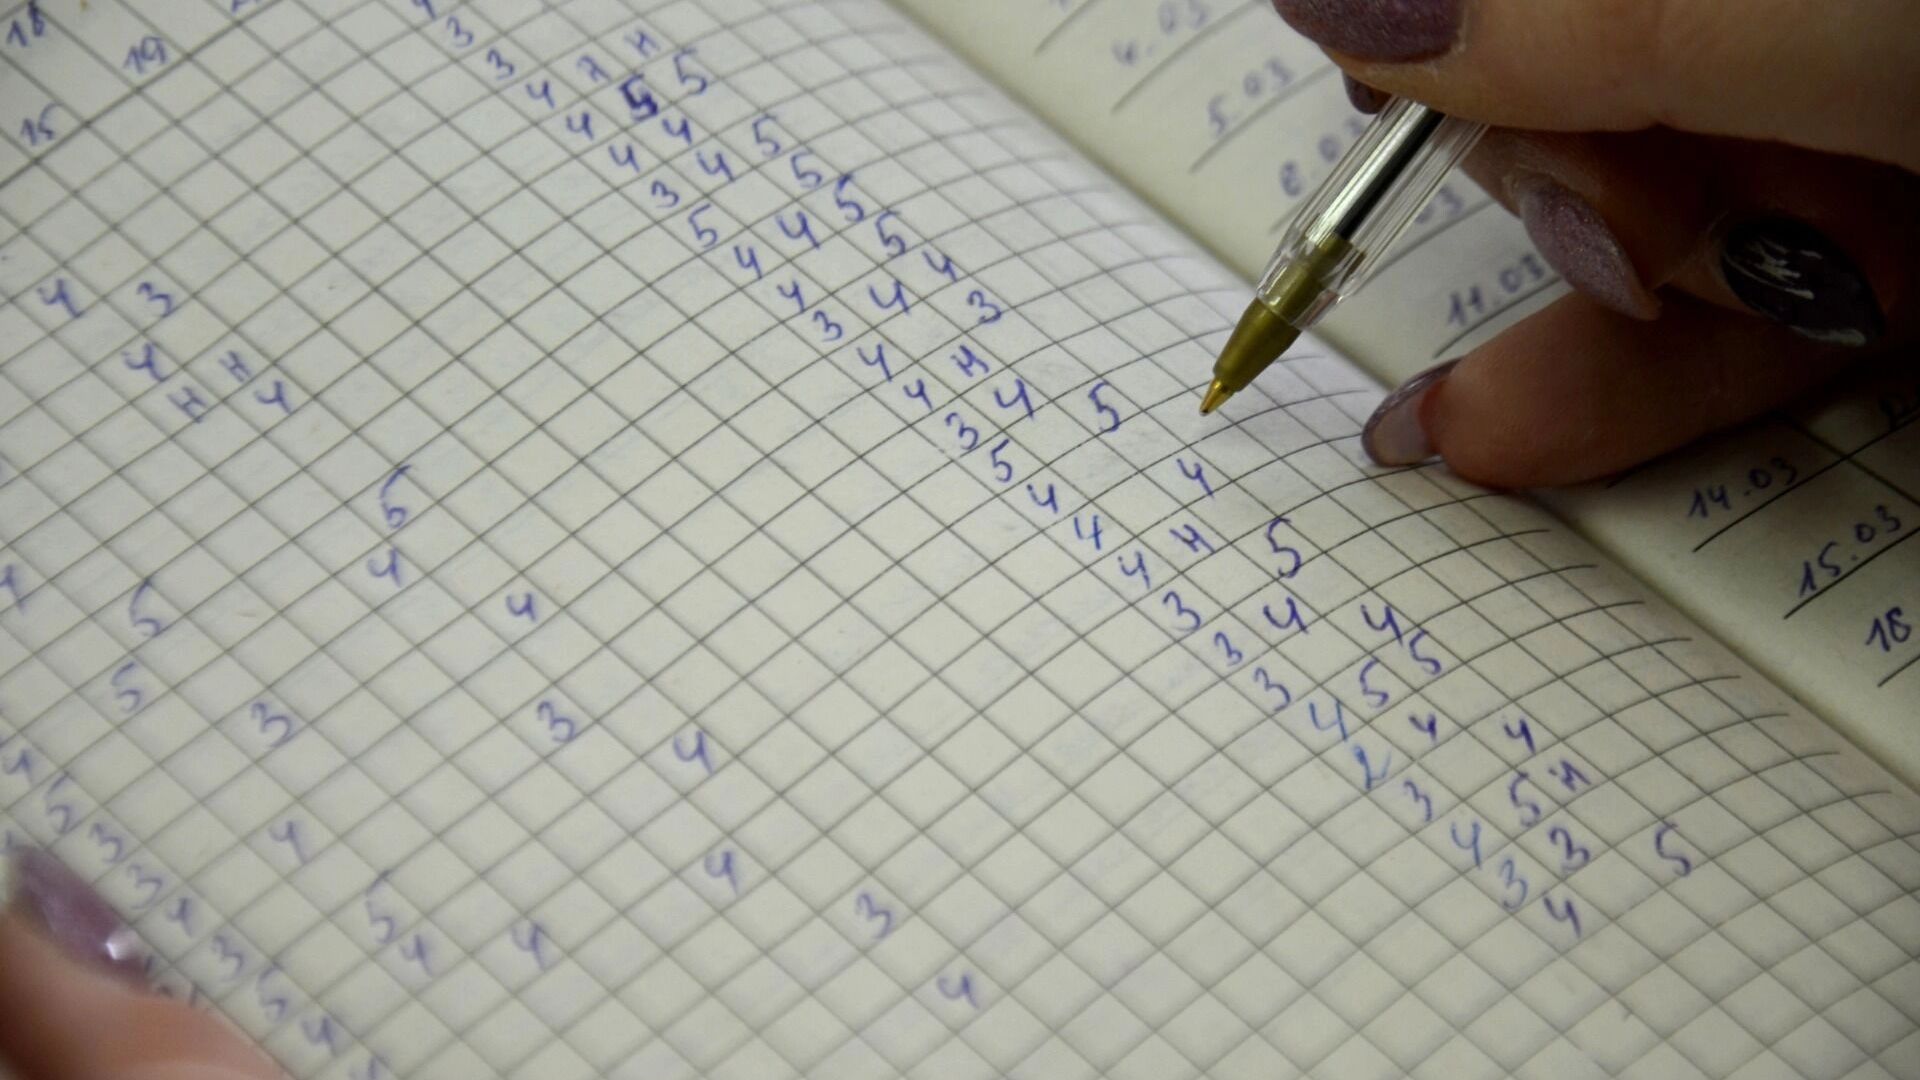 18 19
15
3
3
4 н н
4 5 5
4 4
3 4 5
5 5
4 4 5
4 5
3 4 4
4 3
4 н
3 4 5
5
4 4
4
4 н 5
3
3 4 4
3 5 5
4 4 4
2
3 5 н
4 3 5
3
4
4 3
4 н
н 4
5
4
5 4
5
3 3 4
4 4
5 4 3
4
5
3
3
3
5
4.03
5.03
6.03
11.03
14.03
15.03
18